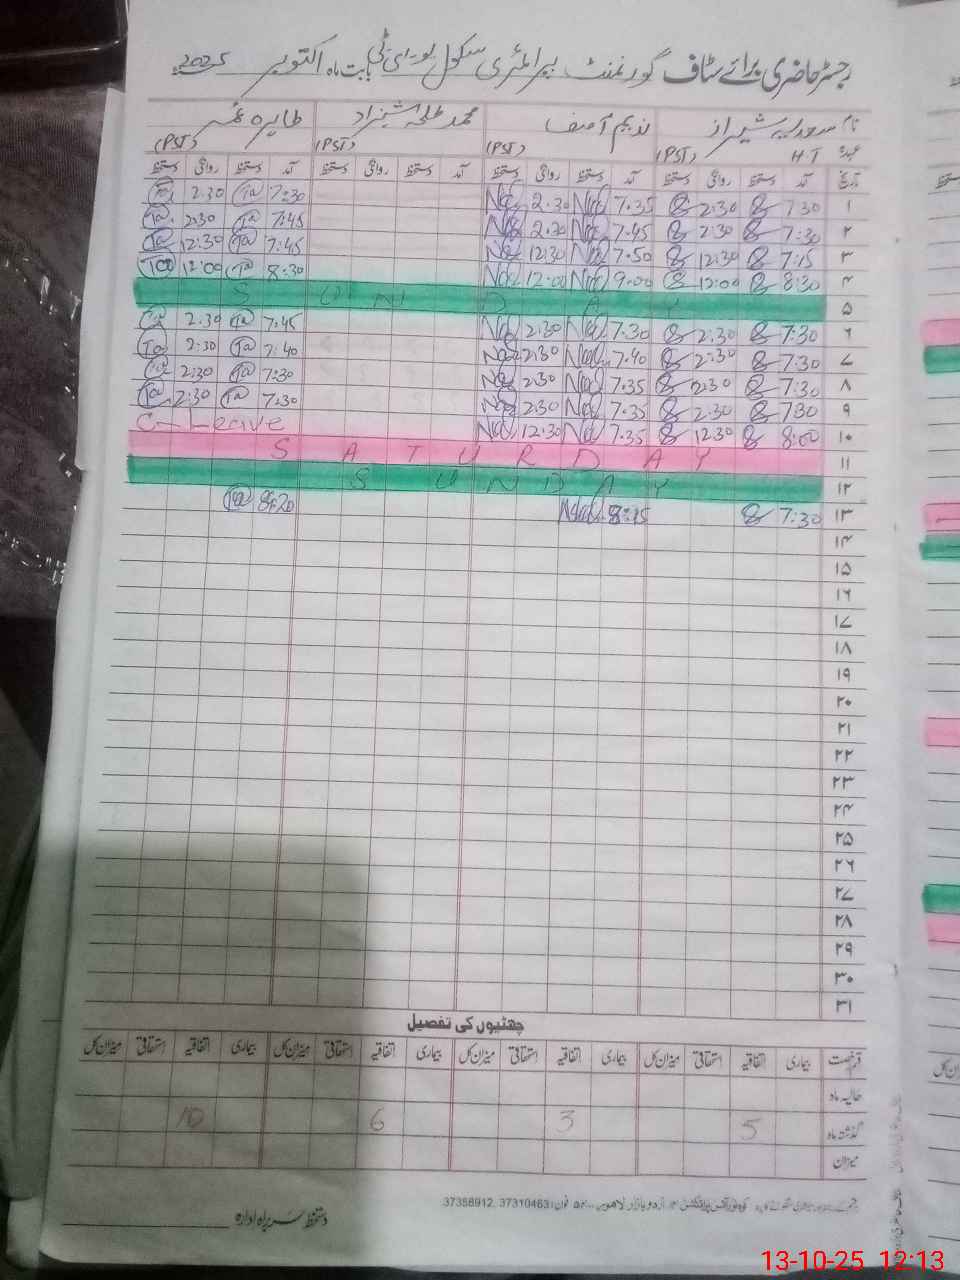 رجسٹر حاضری برائے سٹاف گورنمنٹ پرائمری سکول بابت ماہ اکتوبر 2025
نام سعدیہ شیراز ندیم آصف محمد طلحہ شہزاد طاہرہ
عہدہ H.T (PST) (PST) (PST) (PST)
تاریخ آمد دستخط روانگی دستخط آمد دستخط روانگی دستخط آمد دستخط روانگی دستخط آمد دستخط روانگی دستخط
۱ 7:30 2:30 7:35 2:30 7:30 2:30
۲ 7:30 2:30 7:45 2:30 7:45 2:30
۳ 7:15 12:30 7:50 12:30 7:45 12:30
۴ 8:30 12:00 9:00 12:00 8:30 12:00
۵ S U N D A Y
۶ 7:30 2:30 7:30 2:30 7:45 2:30
۷ 7:30 2:30 7:40 2:30 7:40 2:30
۸ 7:30 2:30 7:35 2:30 7:30 2:30
۹ 7:30 2:30 7:35 2:30 7:30 2:30
۱۰ 8:00 12:30 7:35 12:30 C-Leave
۱۱ S A T U R D A Y
۱۲ S U N D A Y
۱۳ 7:30 8:15 8:20
۱۴
۱۵
۱۶
۱۷
۱۸
۱۹
۲۰
۲۱
۲۲
۲۳
۲۴
۲۵
۲۶
۲۷
۲۸
۲۹
۳۰
۳۱
چھٹیوں کی تفصیل
قسم رخصت بیماری اتفاقیہ استحقاقی میزان کل بیماری اتفاقیہ استحقاقی میزان کل بیماری اتفاقیہ استحقاقی میزان کل بیماری اتفاقیہ استحقاقی میزان کل
حالیہ ماہ
گذشتہ ماہ 5 3 6 10
میزان
اردو بازار لاہور فون: 37310463, 37358912
دستخط سربراہ ادارہ
13-10-25 12:13